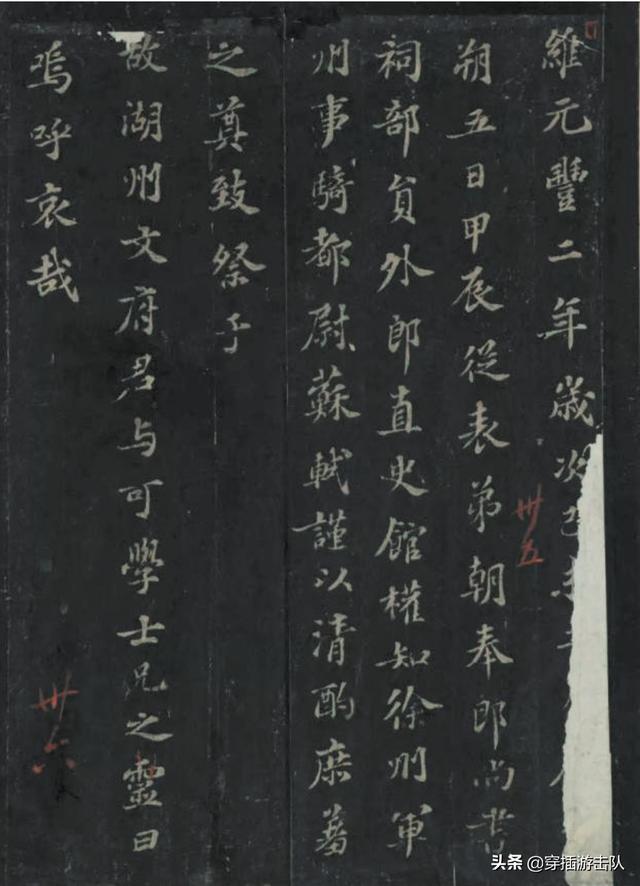 維元豐二年歲次己未
朔五日甲辰從表弟朝奉郎尚書
祠部員外郎直史館權知徐州軍
州事騎都尉蘇軾謹以清酌庶羞
之奠致祭于
故湖州文府君与可學士兄之靈曰
嗚呼哀哉
卅五
卅六
头条 @穿插游击队